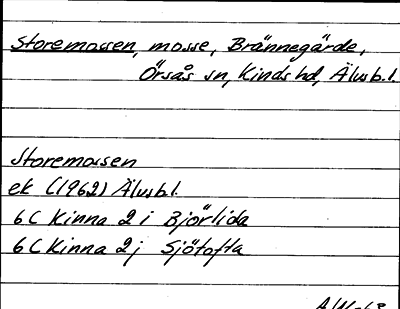 Storemossen, mosse, Brännegärde,
Örsås sn, Kinds hd, Älvsb.l.
Storemossen
ek (1962) Älvsb.l.
6 C Kinna 2 i Björlida
6 C Kinna 2 j Sjötofta